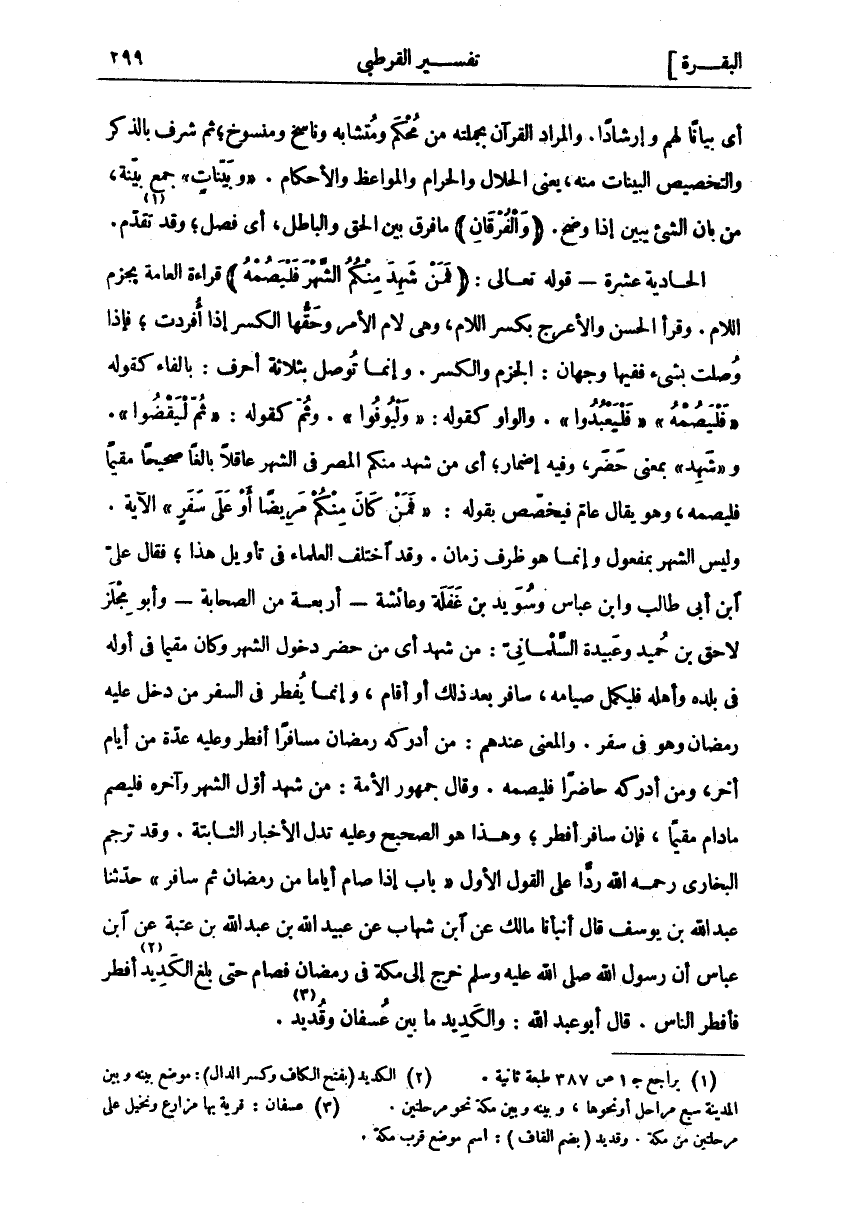 البقـــرة ] تفســـير القرطبى ٢٩٩
أى بيانًا لهم وإرشادًا. والمراد القرآن بجملته من مُحْكَم ومُتشابه وناسخ ومنسوخ؛ ثم شرف بالذكر
والتخصيص البينات منه، يعنى الحلال والحرام والمواعظ والأحكام . «وبَيِّنَاتٍ» جمع بيّنة،
من بان الشئ يبين إذا وضح. ﴿وَالْفُرْقَانِ﴾ مافرق بين الحق والباطل، أى فصل؛ وقد تقدّم. (١)
الحـادية عشرة — قوله تعـالى : ﴿فَمَنْ شَهِدَ مِنْكُمُ الشَّهْرَ فَلْيَصُمْهُ﴾ قراءة العامة بجزم
اللام . وقرأ الحسن والأعرج بكسر اللام، وهى لام الأمر وحَقُّها الكسر إذا أُفردت ؛ فإذا
وُصلت بشىء ففيها وجهان : الجزم والكسر . وإنمـا تُوصل بثلاثة أحرف : بالفاء كقوله
«فَلْيَصُمْهُ» «فَلْيَعْبُدُوا» . والواو كقوله: «وَلْيُوفُوا» . وثُمّ كقوله : «ثُمَّ لْيَقْضُوا».
و«شَهِد» بمعنى حَضَر، وفيه إضمار؛ أى من شهد منكم المصر فى الشهر عاقلاً بالغًا صحيحًا مقيمًا
فليصمه، وهو يقال عامّ فيخصّص بقوله : «فَمَنْ كَانَ مِنْكُمْ مَرِيضًا أَوْ عَلَى سَفَرٍ» الآية .
وليس الشهر بمفعول وإنمـا هو ظرف زمان . وقد اختلف العلماء فى تأويل هذا ؛ فقال علىّ
ابن أبى طالب وابن عباس وسُوَيد بن غَفَلَة وعائشة — أربعـة من الصحابة — وأبو مِجْلَز
لاحق بن حُميد وعَبيدة السَّلْمـانىّ : من شهد أى من حضر دخول الشهر وكان مقيما فى أوله
فى بلده وأهله فليكمل صيامه، سافر بعد ذلك أو أقام ، وإنمـا يُفطر فى السفر من دخل عليه
رمضان وهو فى سفر . والمعنى عندهم : من أدركه رمضان مسافرًا أفطر وعليه عدّة من أيام
أخر، ومن أدركه حاضرًا فليصمه . وقال جمهور الأمة : من شهد أوّل الشهر وآخره فليصم
مادام مقيمًا ، فإن سافر أفطر ؛ وهـذا هو الصحيح وعليه تدل الأخبار الثـابتة . وقد ترجم
البخارى رحمـه الله ردًّا على القول الأول «باب إذا صام أياما من رمضان ثم سافر» حدّثنا
عبد الله بن يوسف قال أنبأنا مالك عن ابن شهاب عن عبيد الله بن عبد الله بن عتبة عن ابن
عباس أن رسول الله صلى الله عليه وسلم خرج إلى مكة فى رمضان فصام حتى بلغ الكَدِيد (٢) أفطر
فأفطر الناس . قال أبو عبد الله : والكَدِيد ما بين عُسفان وقُديد (٣) .
(١) يراجع جـ ١ ص ٣٨٧ طبعة ثانية . (٢) الكديد (بفتح الكاف وكسر الدال) : موضع بينه وبين
المدينة سبع مراحل أونحوها ، وبينه وبين مكة نحو مرحلتين . (٣) عسفان : قرية بها مزارع ونخيل على
مرحلتين من مكة . وقديد (بضم القاف) : اسم موضع قرب مكة .